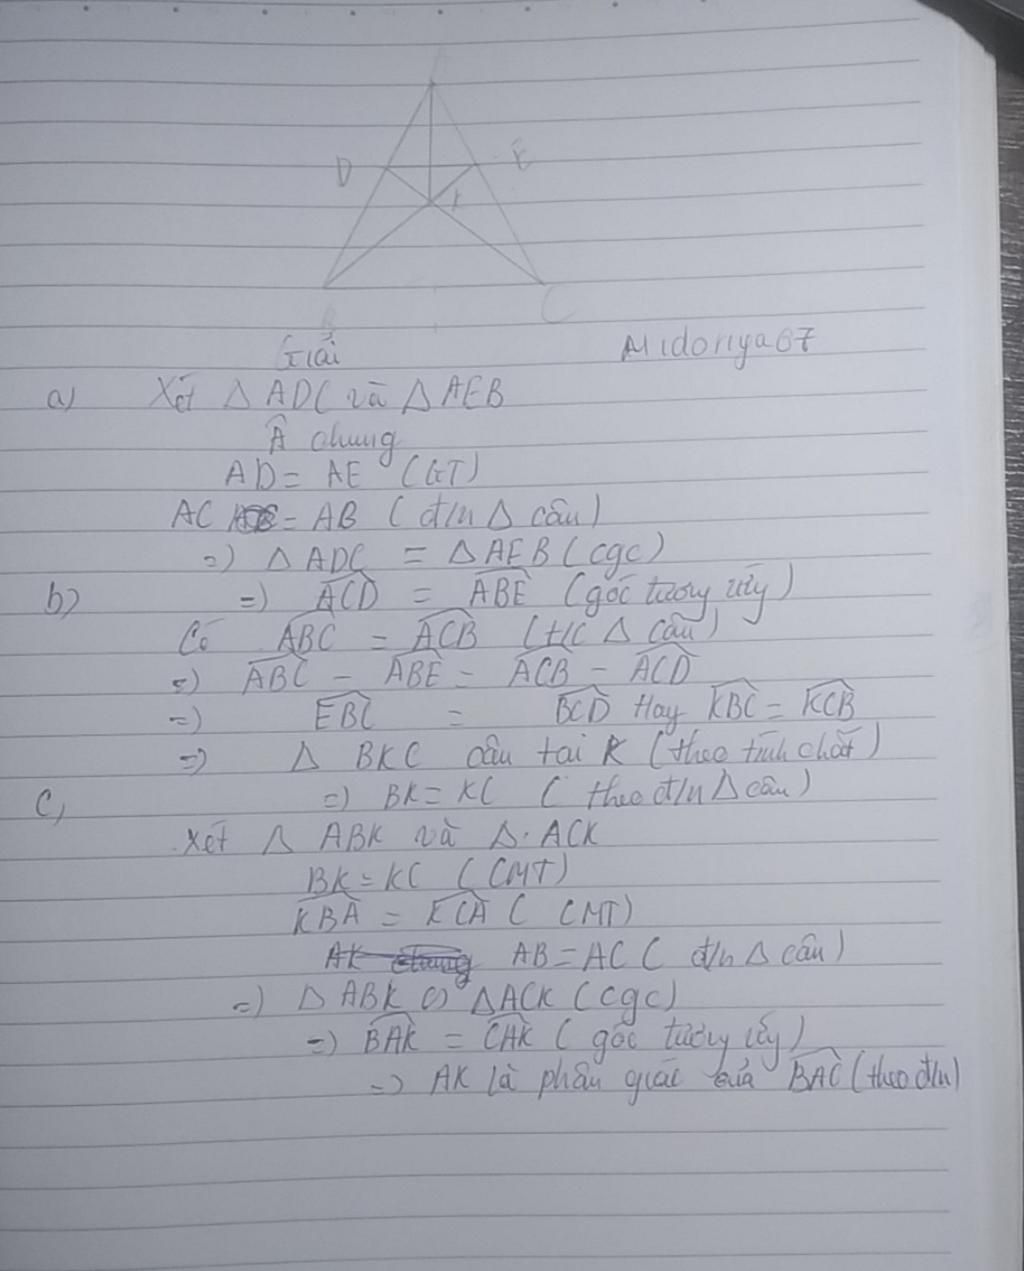 D E
K
C
Giải Midoriya67
a) Xét △ ADC và △ AEB
Â chung
AD = AE (GT)
AC = AB (đ/n △ cân)
=) △ ADC = △ AEB (cgc)
b) =) ACD = ABE (góc tương ứng)
Có ABC = ACB (t/c △ cân)
=) ABC - ABE = ACB - ACD
=) EBC = BCD Hay KBC = KCB
=) △ BKC cân tại K (theo tính chất)
c, =) BK = KC (theo đ/n △ cân)
Xét △ ABK và △ ACK
BK = KC (CMT)
KBA = KCA (CMT)
AK chung AB = AC (đ/n △ cân)
=) △ ABK △ ACK (cgc)
=) BAK = CAK (góc tương ứng)
=) AK là phân giác của BAC (theo đ/n)